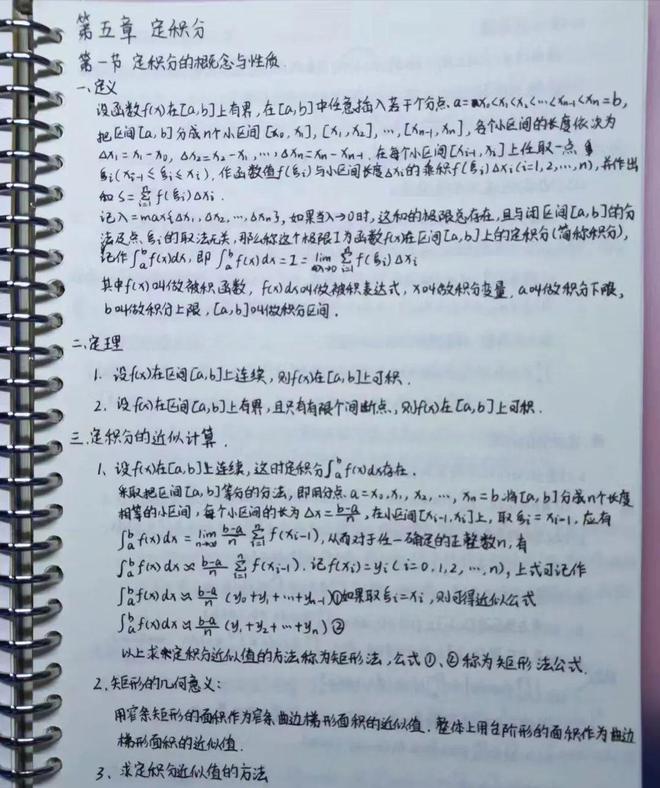 第五章 定积分
第一节 定积分的概念与性质
一、定义
设函数f(x)在[a,b]上有界,在[a,b]中任意插入若干个分点 a=x₀<x₁<x₂<…<xₙ₋₁<xₙ=b,
把区间[a,b]分成n个小区间 [x₀,x₁],[x₁,x₂],…,[xₙ₋₁,xₙ],各个小区间的长度依次为
Δx₁=x₁-x₀,Δx₂=x₂-x₁,…,Δxₙ=xₙ-xₙ₋₁.在每个小区间[xᵢ₋₁,xᵢ]上任取一点
ξᵢ(xᵢ₋₁≤ξᵢ≤xᵢ),作函数值f(ξᵢ)与小区间长度Δxᵢ的乘积f(ξᵢ)Δxᵢ(i=1,2,…,n),并作出
和 S=∑ⁿᵢ₌₁ f(ξᵢ)Δxᵢ.
记λ=max{Δx₁,Δx₂,…,Δxₙ},如果当λ→0时,这和的极限总存在,且与闭区间[a,b]的分
法及点ξᵢ的取法无关,那么称这个极限I为函数f(x)在区间[a,b]上的定积分(简称积分),
记作∫ₐᵇf(x)dx,即 ∫ₐᵇf(x)dx=I=lim ∑ⁿᵢ₌₁ f(ξᵢ)Δxᵢ
其中f(x)叫做被积函数,f(x)dx叫做被积表达式,x叫做积分变量,a叫做积分下限,
b叫做积分上限,[a,b]叫做积分区间.
二、定理
1. 设f(x)在区间[a,b]上连续,则f(x)在[a,b]上可积.
2. 设f(x)在区间[a,b]上有界,且只有有限个间断点,则f(x)在[a,b]上可积.
三、定积分的近似计算.
1、设f(x)在[a,b]上连续,这时定积分∫ₐᵇf(x)dx存在.
采取把区间[a,b]等分的分法,即用分点 a=x₀,x₁,x₂,…,xₙ=b 将[a,b]分成n个长度
相等的小区间,每个小区间的长为Δx=(b-a)/n,在小区间[xᵢ₋₁,xᵢ]上,取ξᵢ=xᵢ₋₁,应有
∫ₐᵇf(x)dx=lim(n→∞) (b-a)/n ∑ⁿᵢ₌₁ f(xᵢ₋₁),从而对于任一确定的正整数n,有
∫ₐᵇf(x)dx≈(b-a)/n ∑ⁿᵢ₌₁ f(xᵢ₋₁).记f(xᵢ)=yᵢ(i=0,1,2,…,n),上式可记作
∫ₐᵇf(x)dx≈(b-a)/n (y₀+y₁+…+yₙ₋₁)①如果取ξᵢ=xᵢ,则可得近似公式
∫ₐᵇf(x)dx≈(b-a)/n (y₁+y₂+…+yₙ)②
以上求定积分近似值的方法称为矩形法,公式①、②称为矩形法公式.
2、矩形的几何意义:
用窄条矩形的面积作为窄条曲边梯形面积的近似值.整体上用台阶形的面积作为曲边
梯形面积的近似值.
3、求定积分近似值的方法